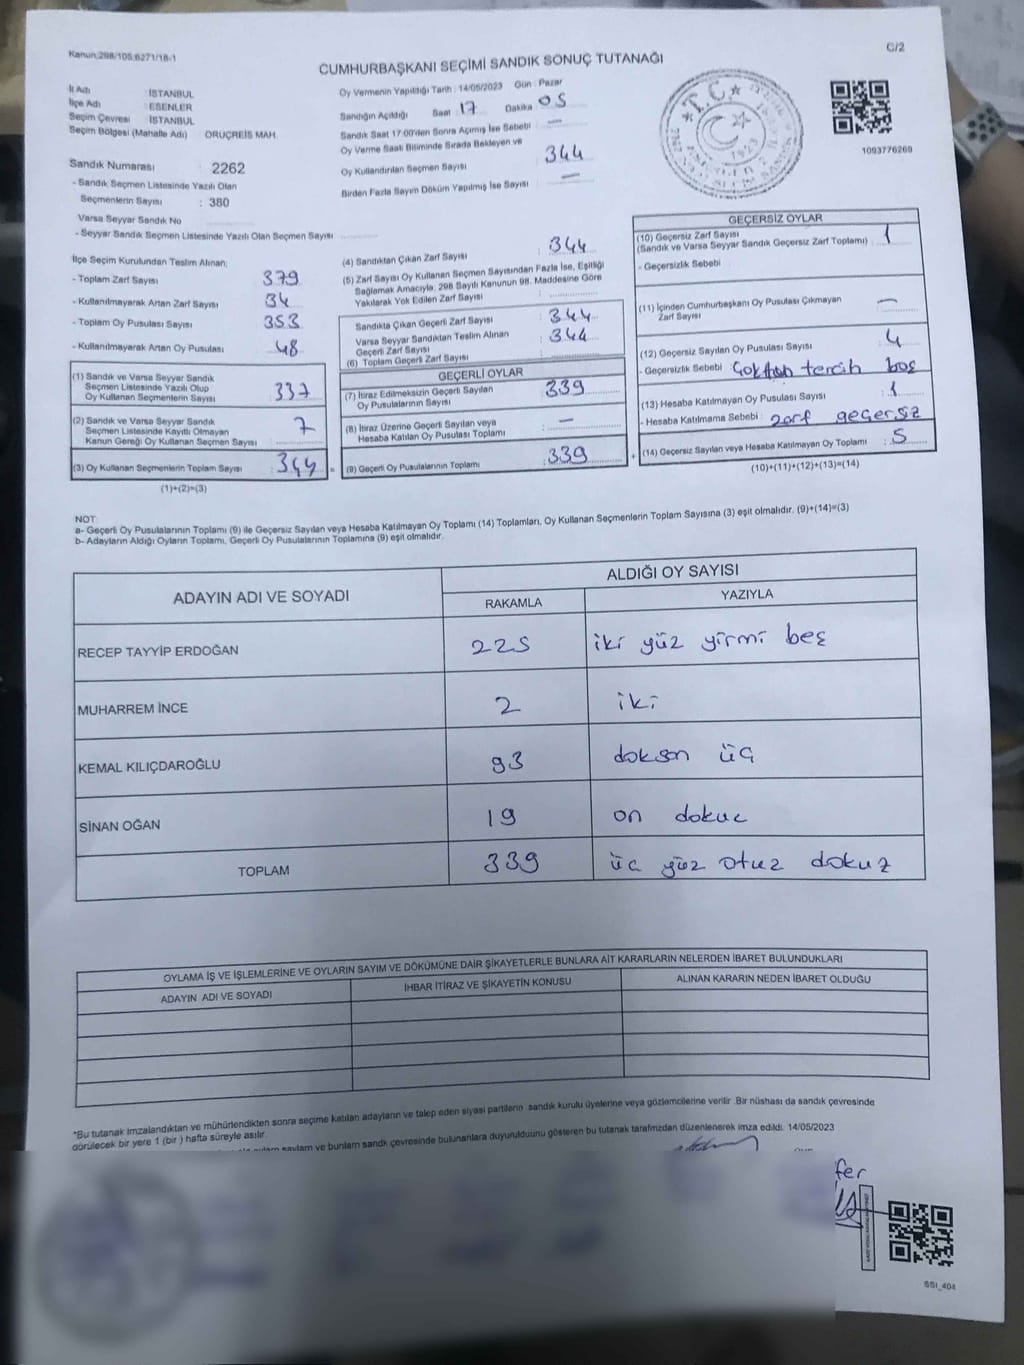 Kanun:298/105;6271/18-1
C/2
CUMHURBAŞKANI SEÇİMİ SANDIK SONUÇ TUTANAĞI
İl Adı : İSTANBUL
İlçe Adı : ESENLER
Seçim Çevresi : İSTANBUL
Seçim Bölgesi (Mahalle Adı) ORUÇREİS MAH.
Sandık Numarası : 2262
- Sandık Seçmen Listesinde Yazılı Olan
Seçmenlerin Sayısı : 380
Varsa Seyyar Sandık No
- Seyyar Sandık Seçmen Listesinde Yazılı Olan Seçmen Sayısı
Oy Vermenin Yapıldığı Tarih : 14/05/2023 Gün : Pazar
Sandığın Açıldığı Saat 17 Dakika 05
Sandık Saat 17:00'den Sonra Açımış İse Sebebi : —
Oy Verme Saati Bitiminde Sırada Bekleyen ve
Oy Kullandırılan Seçmen Sayısı : 344
Birden Fazla Sayım Döküm Yapılmış İse Sayısı : —
T.C.
1923
1093776269
İlçe Seçim Kurulundan Teslim Alınan;
- Toplam Zarf Sayısı 379
- Kullanılmayarak Artan Zarf Sayısı 34
- Toplam Oy Pusulası Sayısı 353
- Kullanılmayarak Artan Oy Pusulası 48
(1) Sandık ve Varsa Seyyar Sandık
Seçmen Listesinde Yazılı Olup
Oy Kullanan Seçmenlerin Sayısı : 337
(2) Sandık ve Varsa Seyyar Sandık
Seçmen Listesinde Kayıtlı Olmayan
Kanun Gereği Oy Kullanan Seçmen Sayısı : 7
(3) Oy Kullanan Seçmenlerin Toplam Sayısı : 344
(1)+(2)=(3)
(4) Sandıktan Çıkan Zarf Sayısı : 344
(5) Zarf Sayısı Oy Kullanan Seçmen Sayısından Fazla İse, Eşitliği
Sağlamak Amacıyla; 298 Sayılı Kanunun 98. Maddesine Göre
Yakılarak Yok Edilen Zarf Sayısı :
Sandıkta Çıkan Geçerli Zarf Sayısı : 344
Varsa Seyyar Sandıktan Teslim Alınan
Geçerli Zarf Sayısı : 344
(6) Toplam Geçerli Zarf Sayısı :
GEÇERLİ OYLAR
(7) İtiraz Edilmeksizin Geçerli Sayılan
Oy Pusulalarının Sayısı : 339
(8) İtiraz Üzerine Geçerli Sayılan veya
Hesaba Katılan Oy Pusulası Toplamı : —
(9) Geçerli Oy Pusulalarının Toplamı : 339
GEÇERSİZ OYLAR
(10) Geçersiz Zarf Sayısı
(Sandık ve Varsa Seyyar Sandık Geçersiz Zarf Toplamı) : 1
- Geçersizlik Sebebi
(11) İçinden Cumhurbaşkanı Oy Pusulası Çıkmayan
Zarf Sayısı : —
(12) Geçersiz Sayılan Oy Pusulası Sayısı : 4
- Geçersizlik Sebebi tercih boş
(13) Hesaba Katılmayan Oy Pusulası Sayısı : 1
- Hesaba Katılmama Sebebi : zarf geçersiz
(14) Geçersiz Sayılan veya Hesaba Katılmayan Oy Toplamı : 5
(10)+(11)+(12)+(13)=(14)
NOT:
a- Geçerli Oy Pusulalarının Toplamı (9) ile Geçersiz Sayılan veya Hesaba Katılmayan Oy Toplamı (14) Toplamları, Oy Kullanan Seçmenlerin Toplam Sayısına (3) eşit olmalıdır. (9)+(14)=(3)
b- Adayların Aldığı Oyların Toplamı, Geçerli Oy Pusulalarının Toplamına (9) eşit olmalıdır.
ADAYIN ADI VE SOYADI
ALDIĞI OY SAYISI
RAKAMLA YAZIYLA
RECEP TAYYİP ERDOĞAN 225 iki yüz yirmi beş
MUHARREM İNCE 2 iki
KEMAL KILIÇDAROĞLU 93 doksan üç
SİNAN OĞAN 19 on dokuz
TOPLAM 339 üç yüz otuz dokuz
OYLAMA İŞ VE İŞLEMLERİNE VE OYLARIN SAYIM VE DÖKÜMÜNE DAİR ŞİKAYETLERLE BUNLARA AİT KARARLARIN NELERDEN İBARET BULUNDUKLARI
ADAYIN ADI VE SOYADI İHBAR İTİRAZ VE ŞİKAYETİN KONUSU ALINAN KARARIN NEDEN İBARET OLDUĞU
*Bu tutanak imzalandıktan ve mühürlendikten sonra seçime katılan adayların ve talep eden siyasi partilerin sandık kurulu üyelerine veya gözlemcilerine verilir. Bir nüshası da sandık çevresinde
görülecek bir yere 1 (bir ) hafta süreyle asılır.
ve bunların sandık çevresinde bulunanlara duyurulduunu gösteren bu tutanak tarafımızdan düzenlenerek imza edildi. 14/05/2023
SSI_404